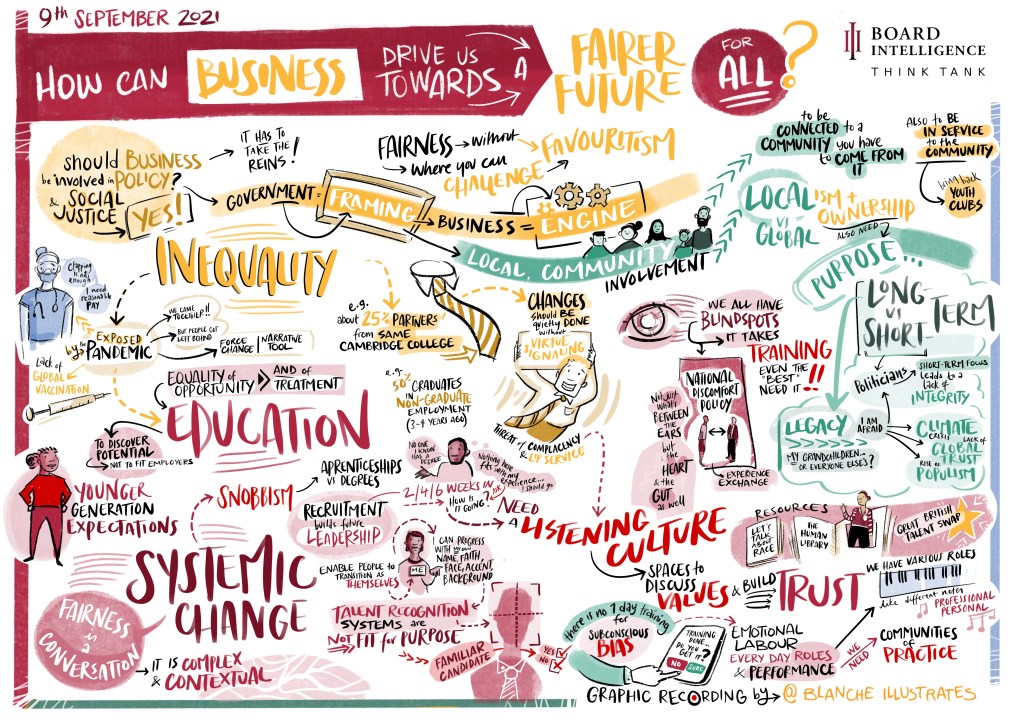 9th SEPTEMBER 2021
HOW CAN BUSINESS DRIVE US TOWARDS A FAIRER FUTURE FOR ALL?
BOARD
INTELLIGENCE
THINK TANK
should BUSINESS
be involved in POLICY?
& SOCIAL
JUSTICE
YES!
IT HAS TO
TAKE THE
REINS!
GOVERNMENT =
FRAMING
BUSINESS =
ENGINE
FAIRNESS → without FAVOURITISM
Where you can
CHALLENGE
LOCAL COMMUNITY
INVOLVEMENT
to be
CONNECTED to a
COMMUNITY you have
to COME FROM
IT
also to BE
IN SERVICE
to the
COMMUNITY
bring back
YOUTH
CLUBS
LOCALISM +
OWNERSHIP
VS
GLOBAL
ALSO NEED
PURPOSE...
LONG-TERM
VS
SHORT-
Politicians
SHORT-TERM FOCUS
leads to a
lack of
INTEGRITY
LEGACY
MY GRANDCHILDREN...
OR EVERYONE ELSE'S?
I AM
AFRAID
CLIMATE
CRISIS
Lack of
GLOBAL
TRUST
RISE OF
POPULISM
INEQUALITY
Clapping
is not
enough
I need
reasonable
PAY
EXPOSED
by the PANDEMIC
WE CAME
TOGETHER!!
BUT PEOPLE GOT
LEFT BEHIND
FORCE
CHANGE
NARRATIVE
TOOL
Lack of
GLOBAL
VACCINATION
e.g.
about 25% PARTNERS
from SAME
CAMBRIDGE COLLEGE
e.g.
50% GRADUATES
IN
NON-GRADUATE
EMPLOYMENT
(3-4 YEARS AGO)
CHANGES
should BE
quietly DONE
without
VIRTUE
SIGNALLING
THREAT of COMPLACENCY
& LIP SERVICE
WE ALL HAVE
BLINDSPOTS
IT TAKES
TRAINING
EVEN THE
"BEST"
NEED IT!!
NATIONAL
DISCOMFORT
POLICY
EXPERIENCE
EXCHANGE
Not just
what's
BETWEEN
THE
EARS
but
the
HEART
& the
GUT
as well
EQUALITY of
OPPORTUNITY
AND of
TREATMENT
EDUCATION
TO DISCOVER
POTENTIAL
NOT TO FIT EMPLOYERS
YOUNGER
GENERATION
EXPECTATIONS
SNOBBISM
APPRENTICESHIPS
VS DEGREES
RECRUITMENT
builds future
LEADERSHIP
2/4/6 WEEKS IN
HOW IS
IT GOING?
NEED
A
LISTENING
CULTURE
SPACES to
DISCUSS
VALUES & BUILD
TRUST
RESOURCES
LET'S
TALK
ABOUT
RACE
THE
HUMAN
LIBRARY
GREAT BRITISH
TALENT SWAP
WE HAVE VARIOUS ROLES
like different notes
PROFESSIONAL
PERSONAL
SYSTEMIC
CHANGE
ENABLE PEOPLE to
TRANSITION AS
THEMSELVES
ME
CAN PROGRESS
WITH my own
NAME, FAITH,
FACE, ACCENT,
BACKGROUND
TALENT RECOGNITION
SYSTEMS are
NOT FIT for PURPOSE
FAMILIAR
CANDIDATE
YES
NO
there is no 1 day training
for
SUBCONSCIOUS
BIAS
TRAINING
DONE...
DO YOU
GET IT?
NO
SURE
EMOTIONAL
LABOUR
EVERY DAY ROLES
& PERFORMANCE
WE
NEED
COMMUNITIES
of
PRACTICE
FAIRNESS
is a
CONVERSATION
IT IS COMPLEX
& CONTEXTUAL
GRAPHIC RECORDING by @ BLANCHE ILLUSTRATES